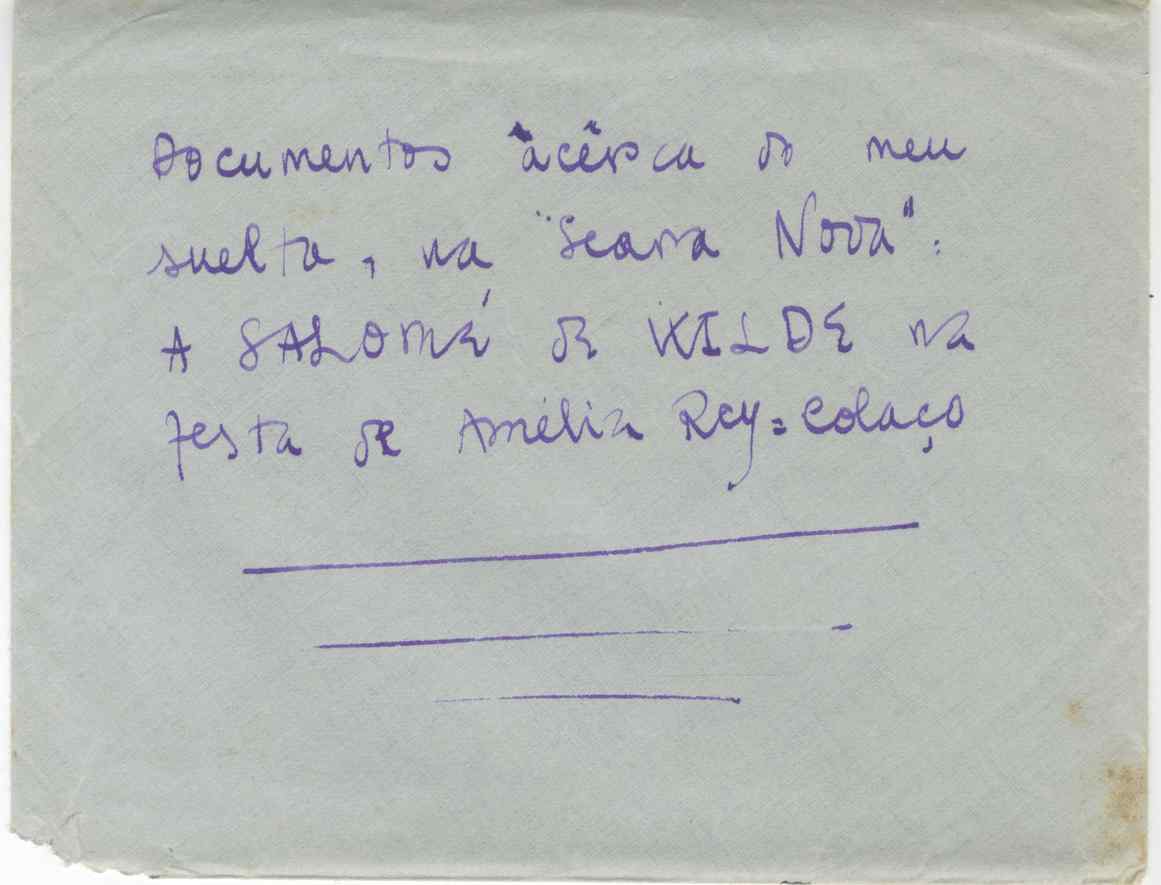 Documentos àcêrca do meu
suelto, na "Seara Nova":
A SALOMÉ de WILDE na
festa de Amélia Rey=Colaço